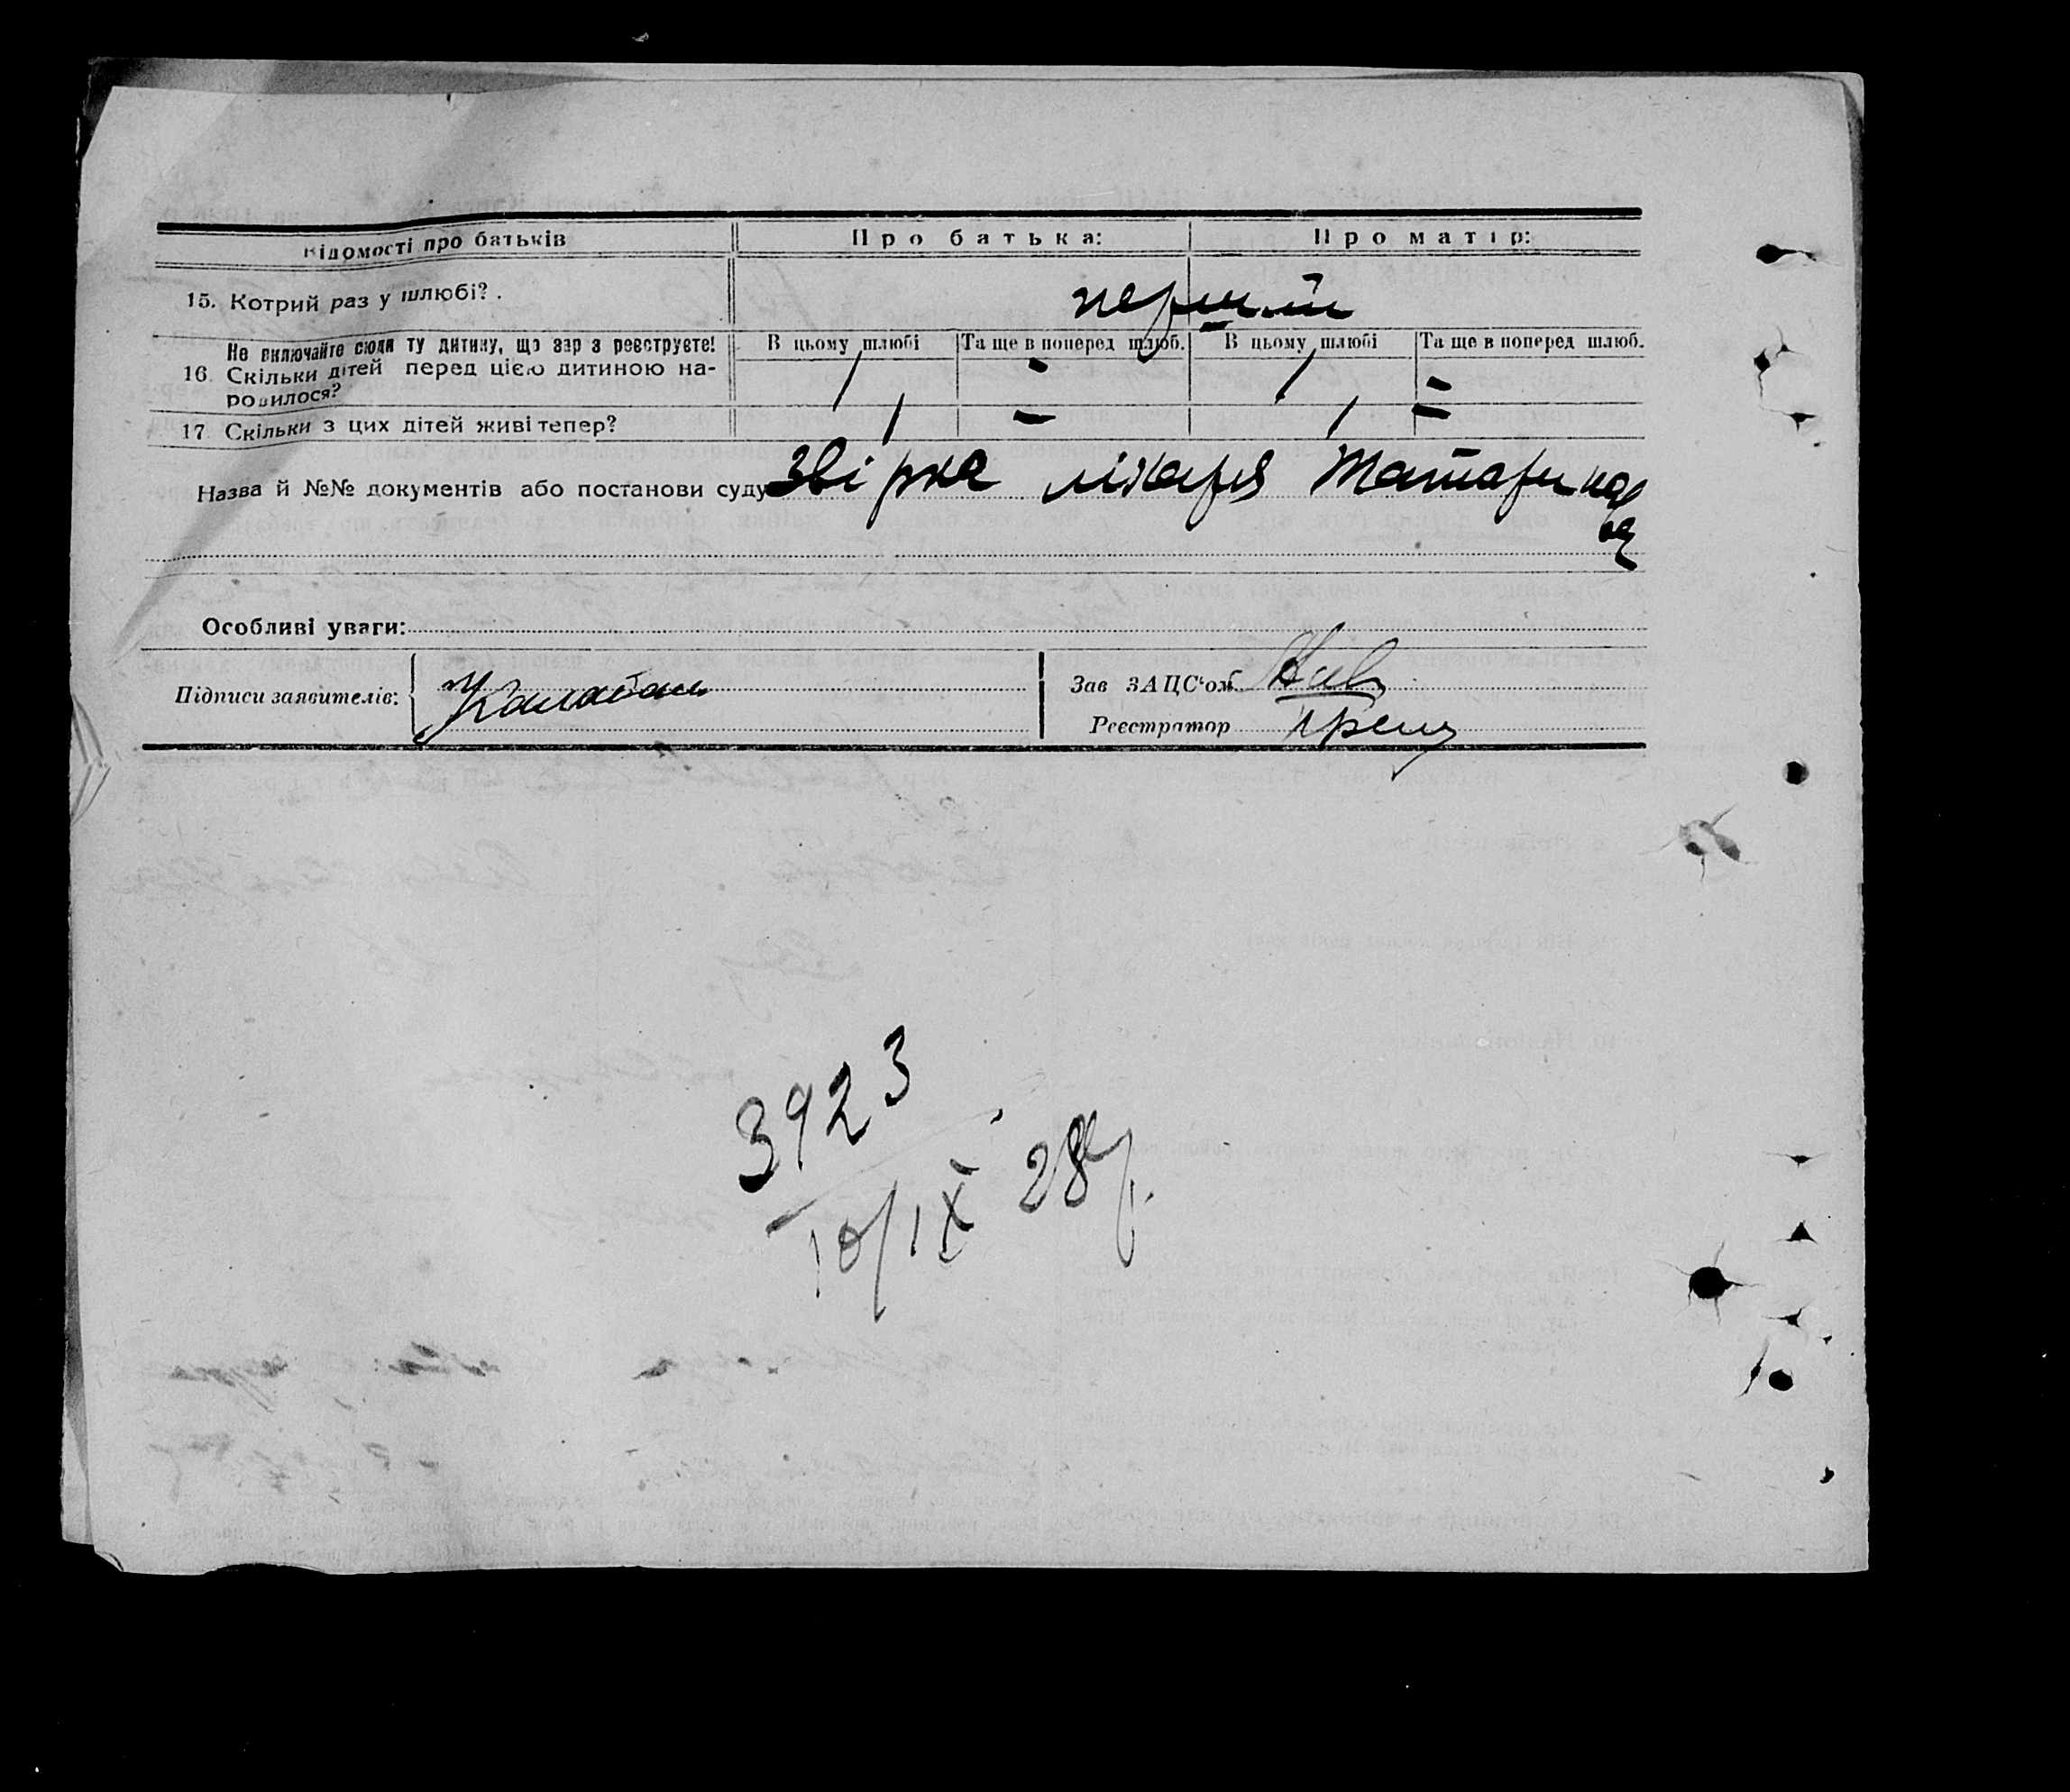 Відомості про батьків Про батька: Про матір:
15. Котрий раз у шлюбі?. перший
Не включайте сюди ту дитину, що зараз реєструєте! В цьому шлюбі Та ще в поперед шлюб. В цьому шлюбі Та ще в поперед шлюб.
16. Скільки дітей перед цією дитиною на- 1 - 1 -
родилося?
17. Скільки з цих дітей живі тепер? 1 - 1 -
Назва й №№ документів або постанови суду звірка лікаря
Особливі уваги:
Підписи заявителів: Зав ЗАЦС'ом
Реєстратор
3923
10/IX 28 р.